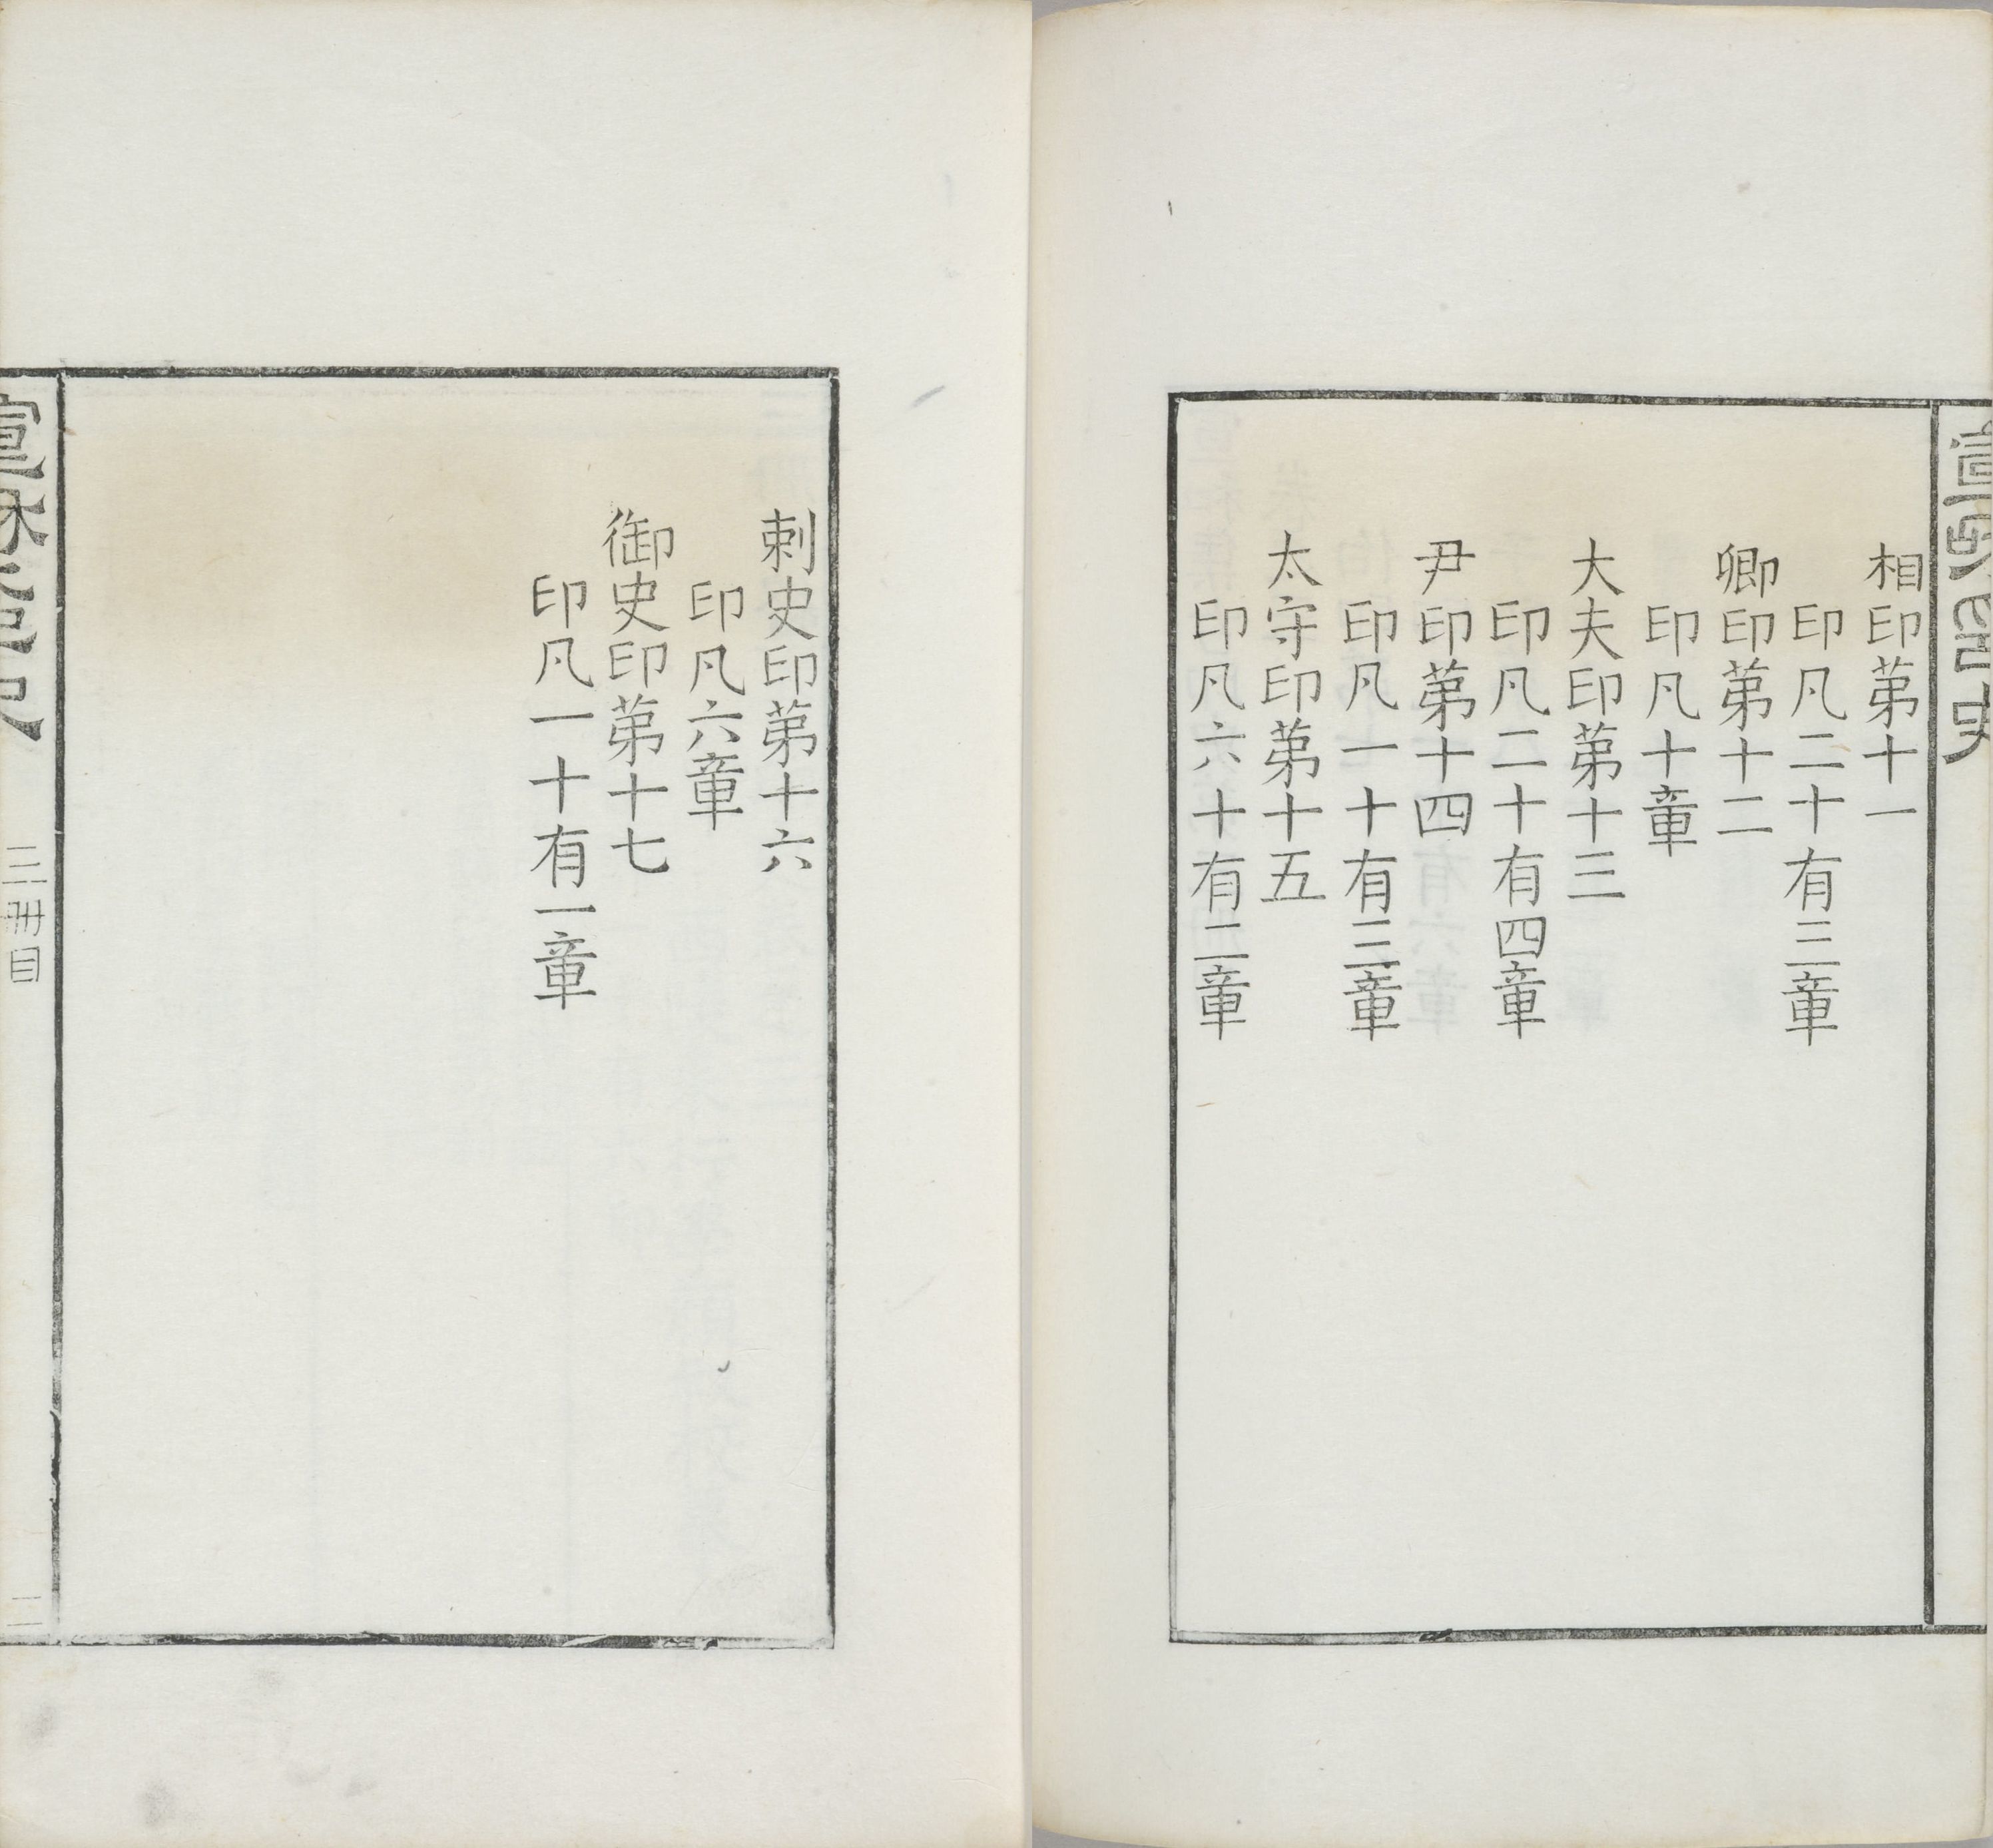 相印苐十一
印凡二十有三章
卿印苐十二
印凡十章
大夫印苐十三
印凡二十有四章
尹印苐十四
印凡一十有三章
太守印苐十五
印凡六十有二章
刺史印苐十六
印凡六章
御史印苐十七
印凡一十有一章
三冊目
二